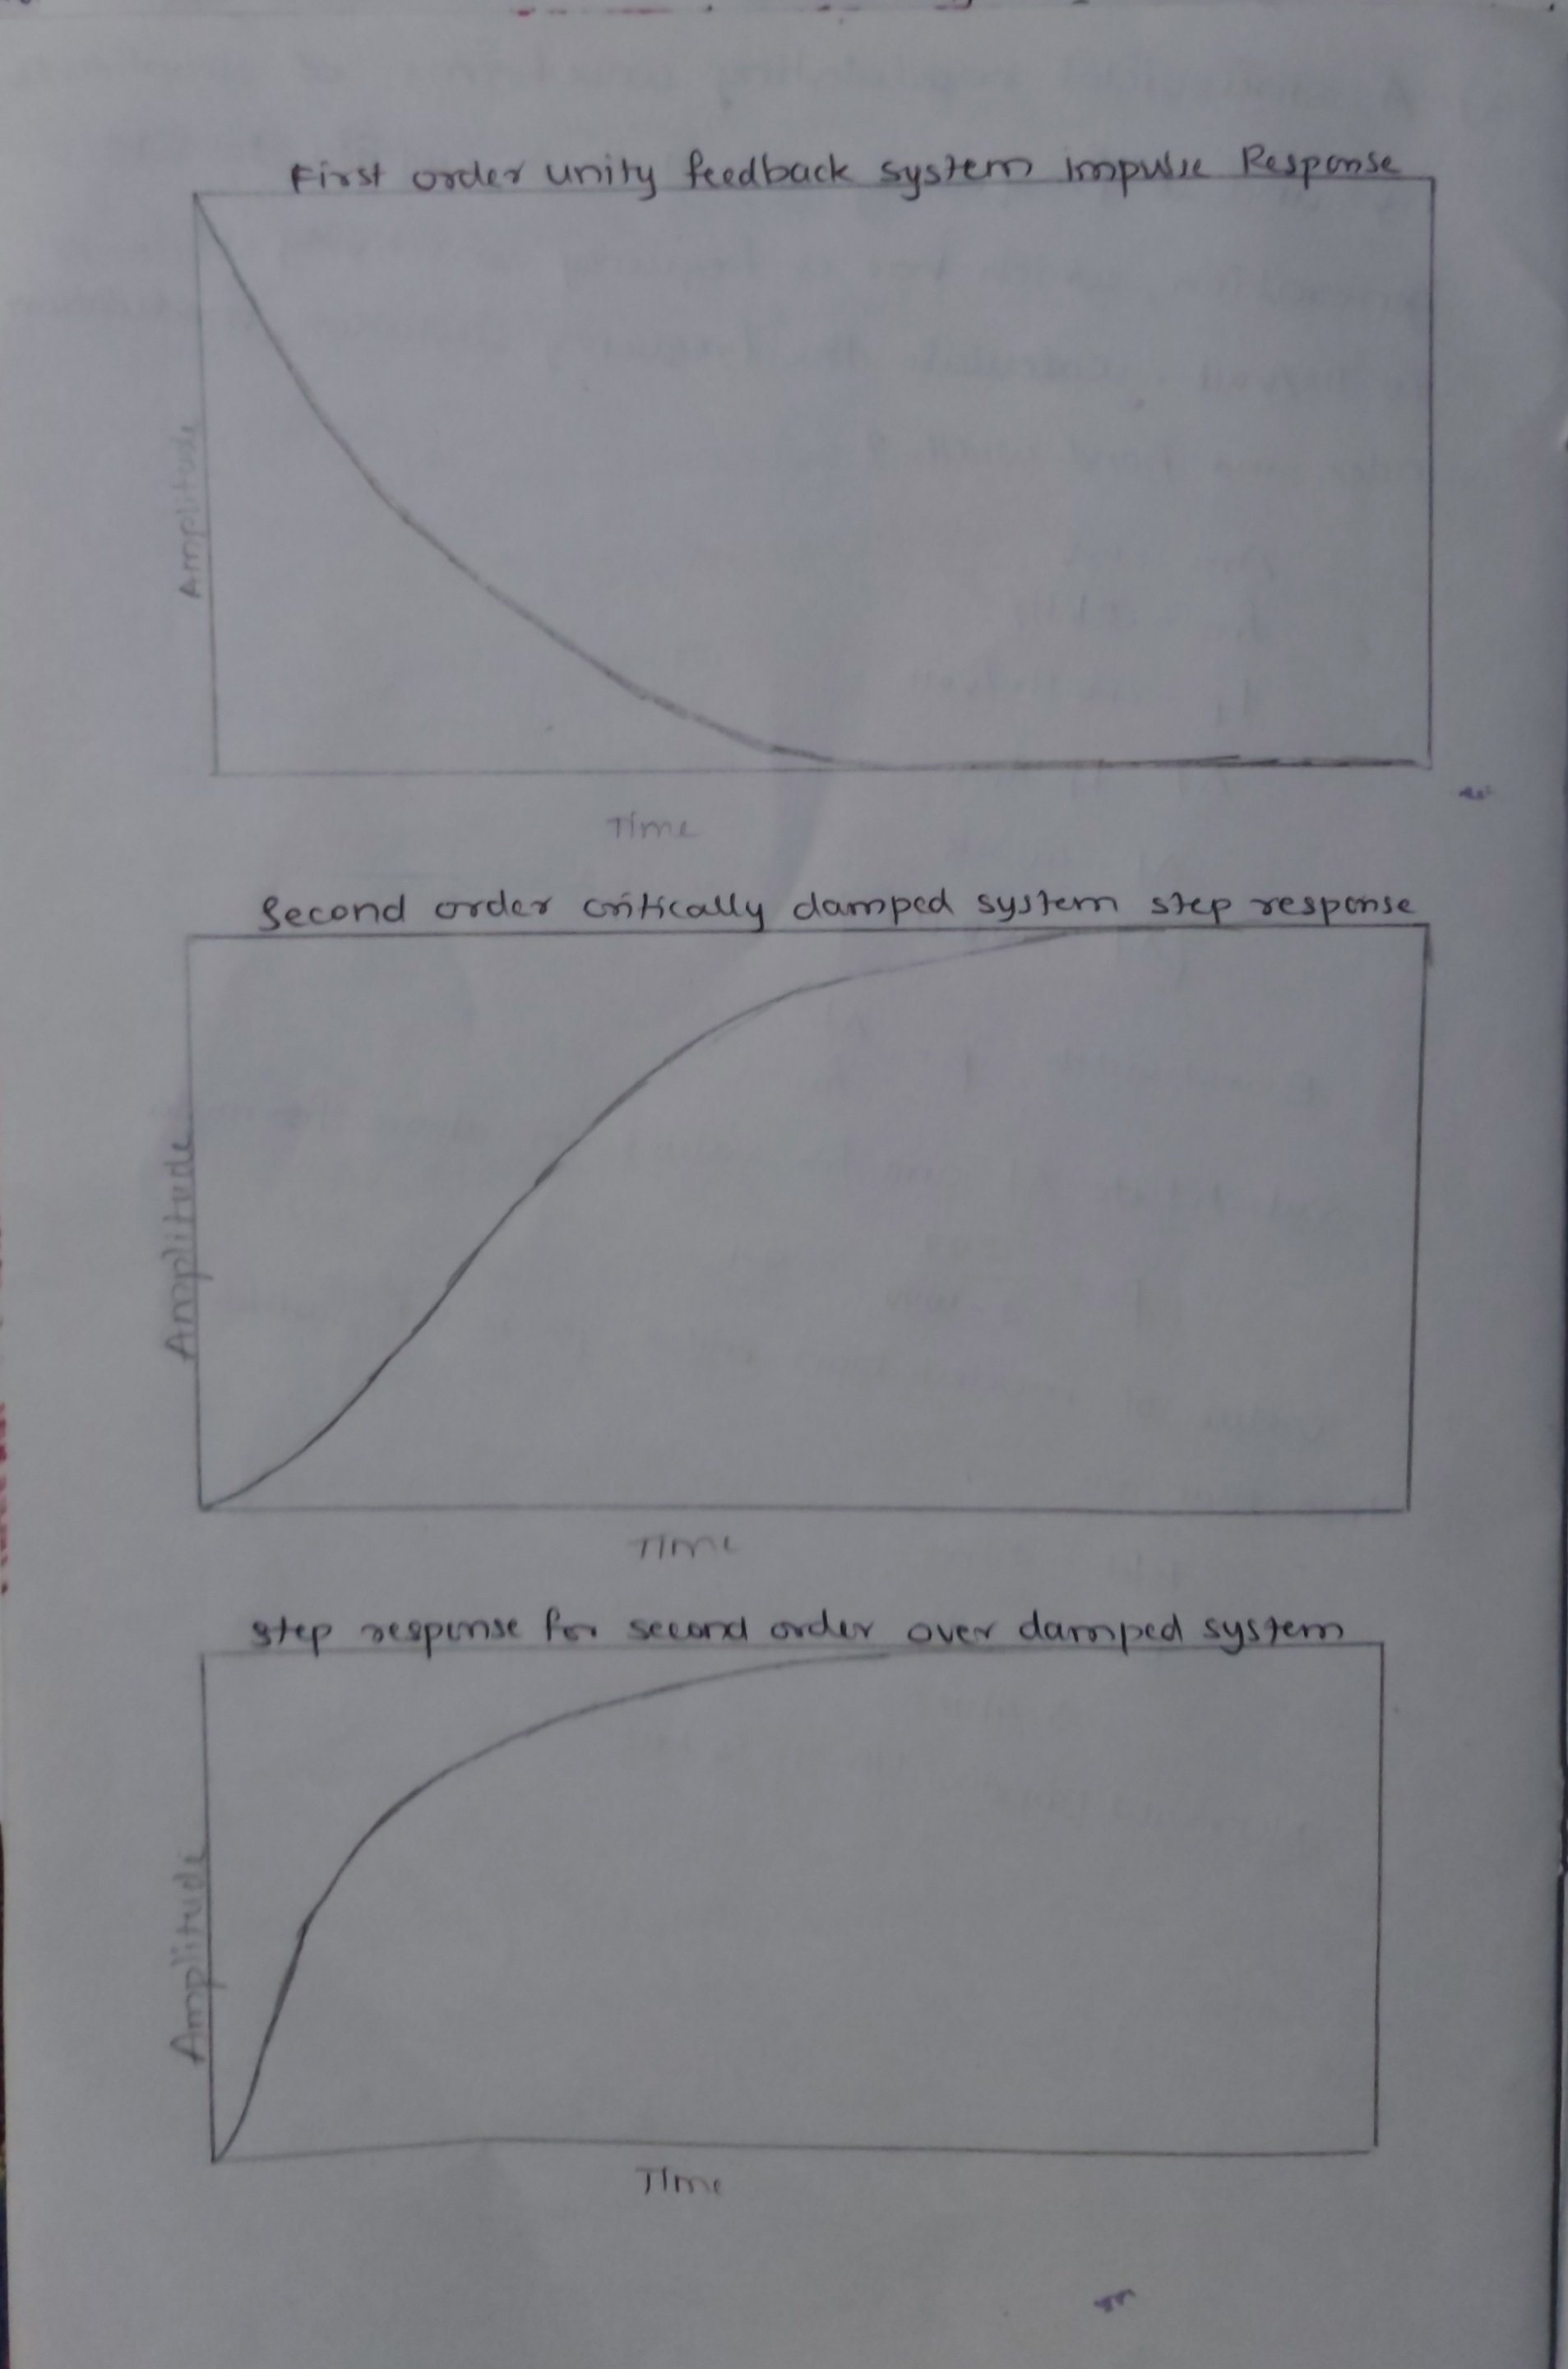 First order unity feedback system impulse Response
Amplitude
Time
Second order critically damped system step response
Amplitude
Time
step response for second order over damped system
Amplitude
Time